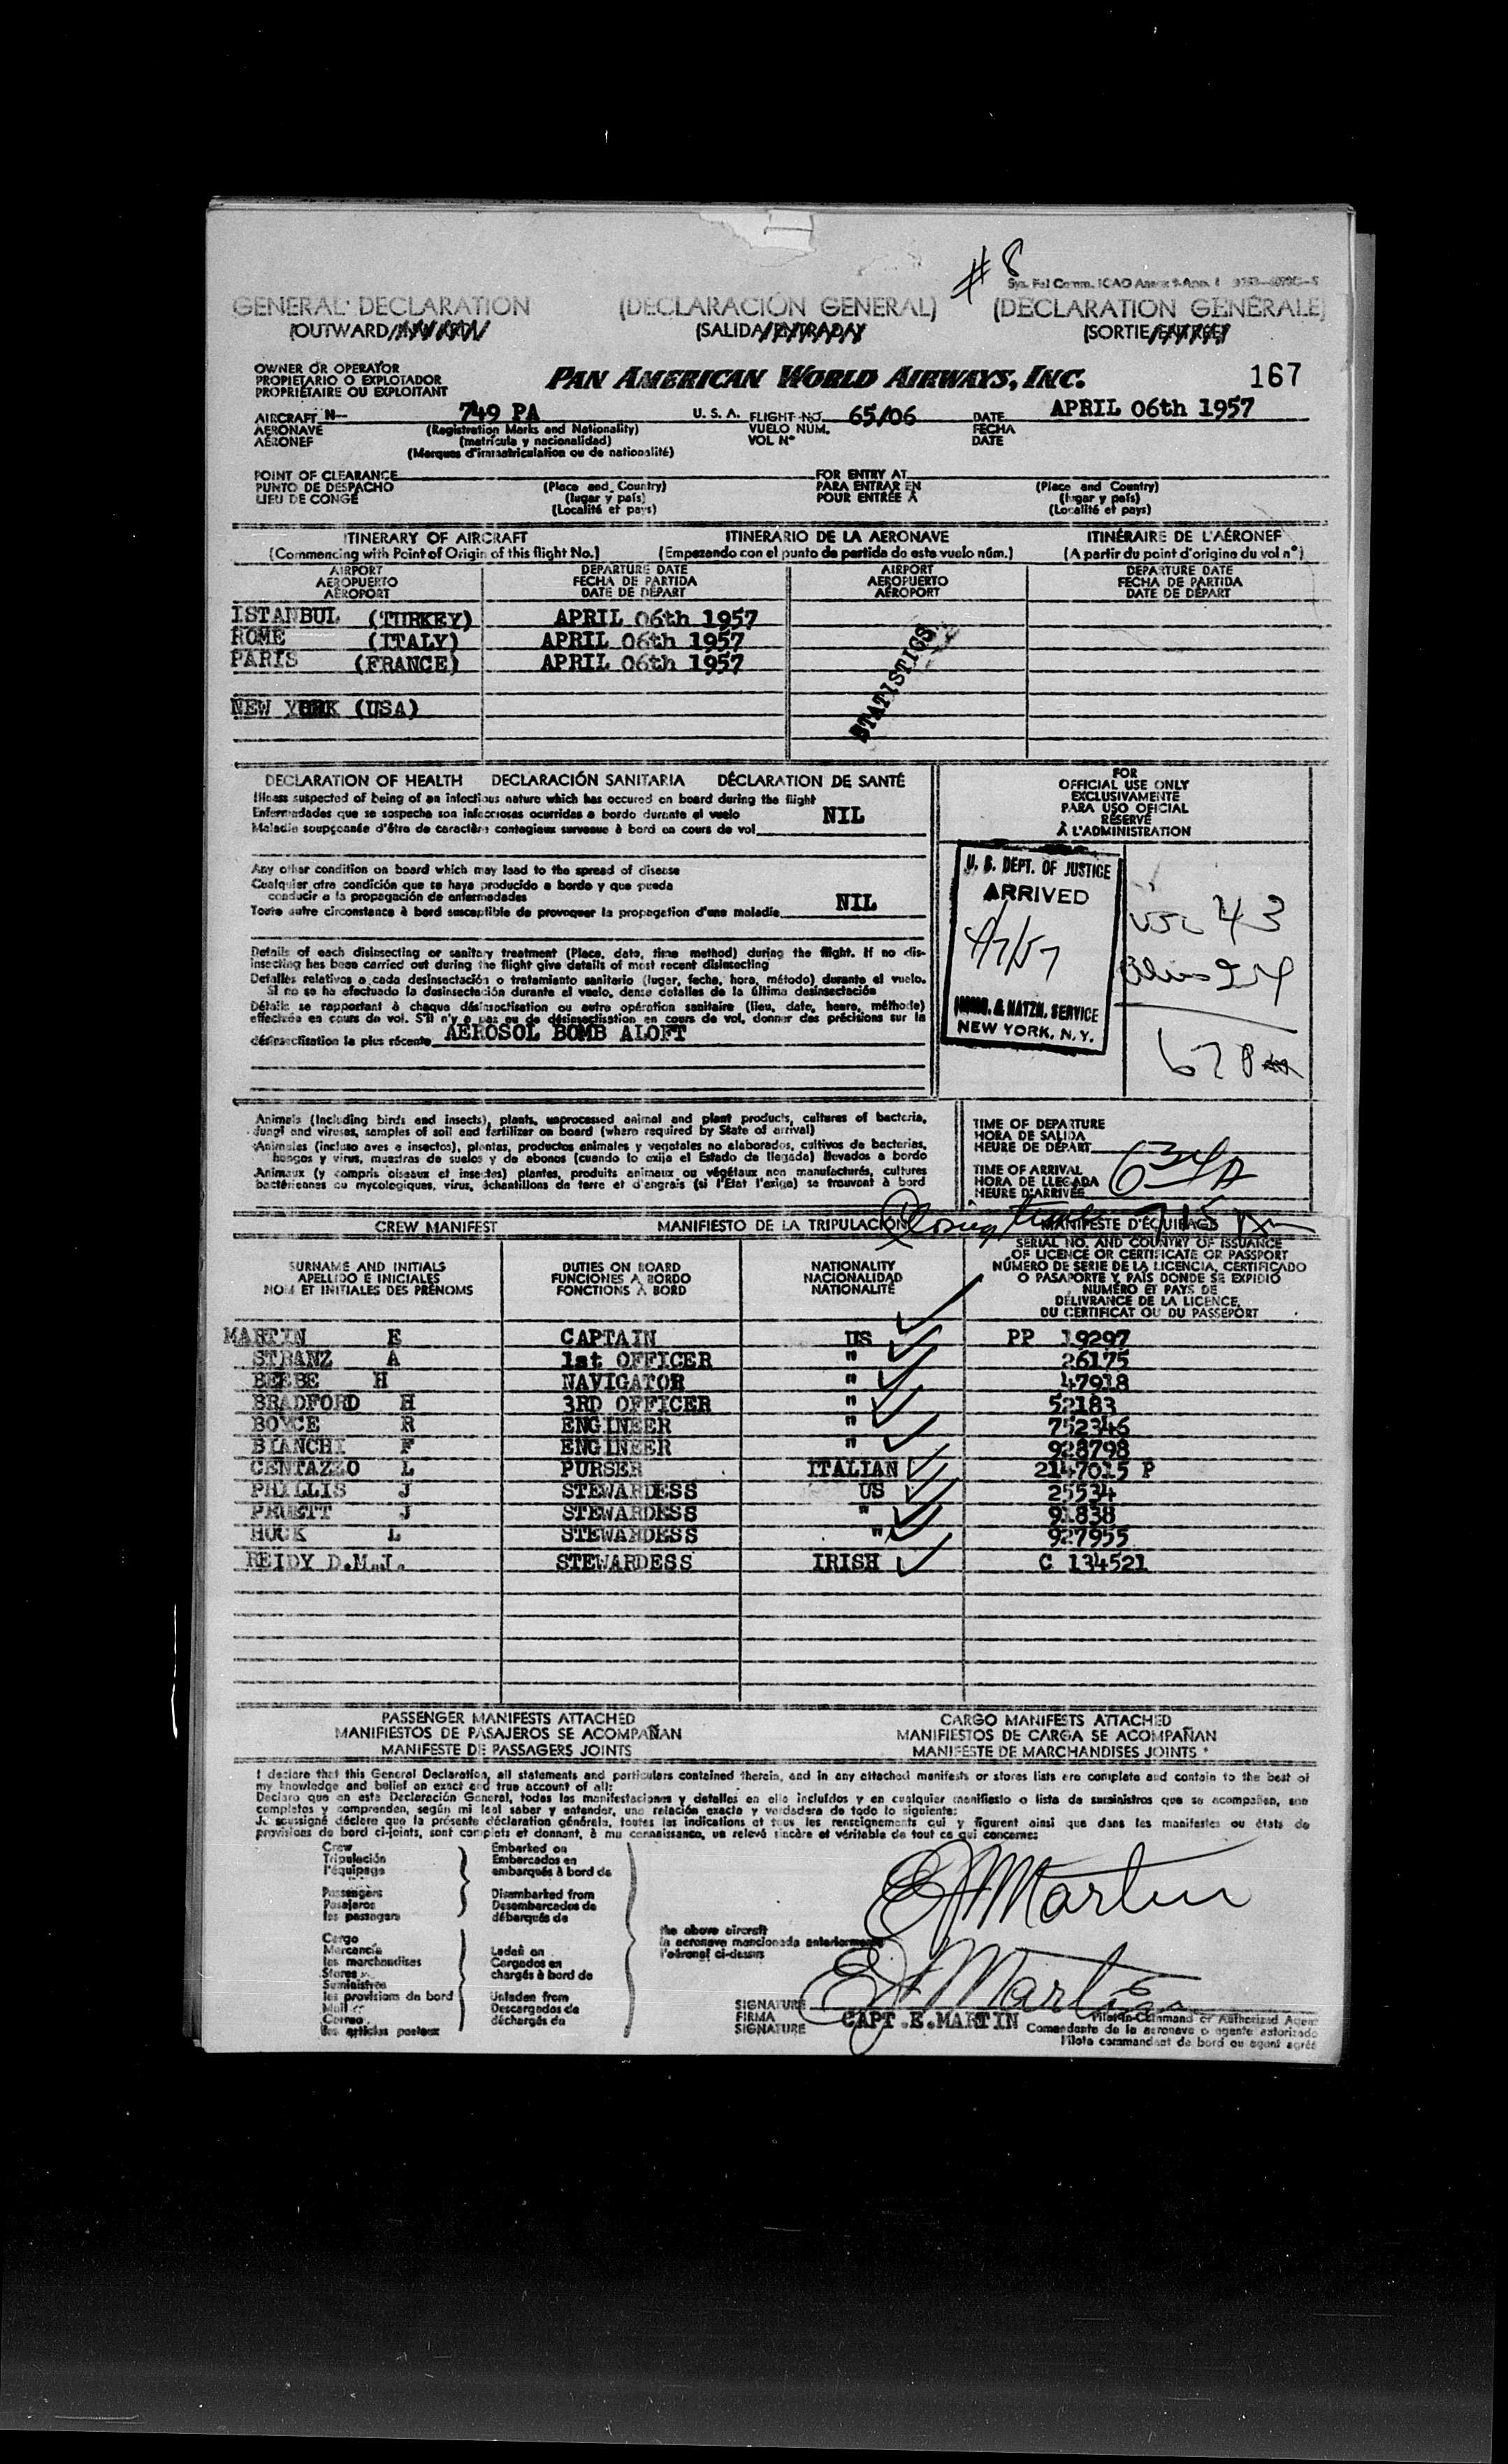 # 8
Sys. Fal Comm. ICAO Annex 9 App. 1
GENERAL DECLARATION (DECLARACIÓN GENERAL) (DÉCLARATION GÉNÉRALE)
(OUTWARD/ (SALIDA/ENTRADA) (SORTIE/ENTRÉE)
OWNER OR OPERATOR
PROPIETARIO O EXPLOTADOR
PROPRIÉTAIRE OU EXPLOITANT
PAN AMERICAN WORLD AIRWAYS, INC. 167
AIRCRAFT N— 749 PA U. S. A. FLIGHT NO. 65/06 DATE APRIL 06th 1957
AERONAVE (Registration Marks and Nationality) VUELO NÚM. FECHA
AÉRONEF (matrícula y nacionalidad) VOL Nº DATE
(Marques d'immatriculation ou de nationalité)
POINT OF CLEARANCE FOR ENTRY AT
PUNTO DE DESPACHO (Place and Country) PARA ENTRAR EN (Place and Country)
LIEU DE CONGÉ (lugar y país) POUR ENTRÉE À (lugar y país)
(Localité et pays) (Localité et pays)
ITINERARY OF AIRCRAFT ITINERARIO DE LA AERONAVE ITINÉRAIRE DE L'AÉRONEF
(Commencing with Point of Origin of this flight No.) (Empezando con el punto de partida de este vuelo núm.) (A partir du point d'origine du vol nº)
AIRPORT DEPARTURE DATE AIRPORT DEPARTURE DATE
AEROPUERTO FECHA DE PARTIDA AEROPUERTO FECHA DE PARTIDA
AÉROPORT DATE DE DÉPART AÉROPORT DATE DE DÉPART
ISTANBUL (TURKEY) APRIL 06th 1957
ROME (ITALY) APRIL 06th 1957
PARIS (FRANCE) APRIL 06th 1957
STATISTICS
NEW YORK (USA)
DECLARATION OF HEALTH DECLARACIÓN SANITARIA DÉCLARATION DE SANTÉ
Illness suspected of being of an infectious nature which has occured on board during the flight
Enfermedades que se sospecha son infecciosas ocurridas a bordo durante el vuelo NIL
Maladie soupçonnée d'être de caractère contagieux survenue à bord en cours de vol
Any other condition on board which may lead to the spread of disease
Cualquier otra condición que se haya producido a bordo y que pueda
conducir a la propagación de enfermedades
Toute autre circonstance à bord susceptible de provoquer la propagation d'une maladie NIL
Details of each disinsecting or sanitary treatment (Place, date, time method) during the flight. If no dis-
insecting has been carried out during the flight give details of most recent disinsecting
Detalles relativos a cada desinsectación o tratamiento sanitario (lugar, fecha, hora, método) durante el vuelo.
Si no se ha efectuado la desinsectación durante el vuelo, dense detalles de la última desinsectación
Détails se rapportant à chaque désinsectisation ou autre opération sanitaire (lieu, date, heure, méthode)
effectuée en cours de vol. S'il n'y a pas eu de désinsectisation en cours de vol, donner des précisions sur la
désinsectisation la plus récente AEROSOL BOMB ALOFT
FOR
OFFICIAL USE ONLY
EXCLUSIVAMENTE
PARA USO OFICIAL
RÉSERVÉ
À L'ADMINISTRATION
U. S. DEPT. OF JUSTICE
ARRIVED
4/7/57
IMMIG. & NATZN. SERVICE
NEW YORK, N. Y.
USC 43
Aliens 24
67
Animals (Including birds and insects), plants, unprocessed animal and plant products, cultures of bacteria,
fungi and viruses, samples of soil and fertilizer on board (where required by State of arrival)
Animales (incluso aves e insectos), plantas, productos animales y vegetales no elaborados, cultivos de bacterias,
hongos y virus, muestras de suelos y de abonos (cuando lo exija el Estado de llegada) llevados a bordo
Animaux (y compris oiseaux et insectes) plantes, produits animaux ou végétaux non manufacturés, cultures
bactériennes ou mycologiques, virus, échantillons de terre et d'engrais (si l'État l'exige) se trouvant à bord
TIME OF DEPARTURE
HORA DE SALIDA
HEURE DE DÉPART
TIME OF ARRIVAL
HORA DE LLEGADA
HEURE D'ARRIVÉE
634A
Closing time 715 Am
CREW MANIFEST MANIFIESTO DE LA TRIPULACIÓN MANIFESTE D'ÉQUIPAGE
SURNAME AND INITIALS
APELLIDO E INICIALES
NOM ET INITIALES DES PRÉNOMS
DUTIES ON BOARD
FUNCIONES A BORDO
FONCTIONS À BORD
NATIONALITY
NACIONALIDAD
NATIONALITÉ
SERIAL NO. AND COUNTRY OF ISSUANCE
OF LICENCE OR CERTIFICATE OR PASSPORT
NÚMERO DE SERIE DE LA LICENCIA, CERTIFICADO
O PASAPORTE Y PAÍS DONDE SE EXPIDIÓ
NUMÉRO ET PAYS DE
DÉLIVRANCE DE LA LICENCE,
DU CERTIFICAT OU DU PASSEPORT
MARTIN E CAPTAIN US PP 19297
STRANZ A 1st OFFICER " 26175
BEEBE H NAVIGATOR " 47918
BRADFORD H 3RD OFFICER " 52183
BOYCE R ENGINEER " 752346
BIANCHI F ENGINEER " 928798
CENTAZZO L PURSER ITALIAN 2147015 P
PHILLIS J STEWARDESS US 25534
PRUETT J STEWARDESS " 91838
HOCK L STEWARDESS " 927955
REIDY D.M.J. STEWARDESS IRISH C 134521
PASSENGER MANIFESTS ATTACHED CARGO MANIFESTS ATTACHED
MANIFIESTOS DE PASAJEROS SE ACOMPAÑAN MANIFIESTOS DE CARGA SE ACOMPAÑAN
MANIFESTE DE PASSAGERS JOINTS MANIFESTE DE MARCHANDISES JOINTS
I declare that this General Declaration, all statements and particulars contained therein, and in any attached manifests or stores lists are complete and contain to the best of
my knowledge and belief an exact and true account of all:
Declaro que en esta Declaración General, todas las manifestaciones y detalles en ella incluídos y en cualquier manifiesto o lista de suministros que se acompañen, son
completos y comprenden, según mi leal saber y entender, una relación exacta y verdadera de todo lo siguiente:
Je soussigné déclare que la présente déclaration générale, toutes les indications et tous les renseignements qui y figurent ainsi que dans les manifestes ou états de
provisions de bord ci-joints, sont complets et donnant, à ma connaissance, un relevé sincère et véritable de tout ce qui concerne:
Crew
Tripulación
l'équipage
Passengers
Pasajeros
les passagers
Embarked on
Embarcados en
embarqués à bord de
Disembarked from
Desembarcados de
débarqués de
Cargo
Mercancía
les marchandises
Stores
Suministros
les provisions de bord
Mail
Correo
les articles postaux
Laden on
Cargados en
chargés à bord de
Unladen from
Descargados de
déchargés de
the above aircraft
la aeronave mencionada anteriormente
l'aéronef ci-dessus
E J Martin
E J Martin
SIGNATURE
FIRMA CAPT.E.MARTIN
SIGNATURE
Pilot-in-Command or Authorized Agent
Comandante de la aeronave o agente autorizado
Pilote commandant de bord ou agent agréé